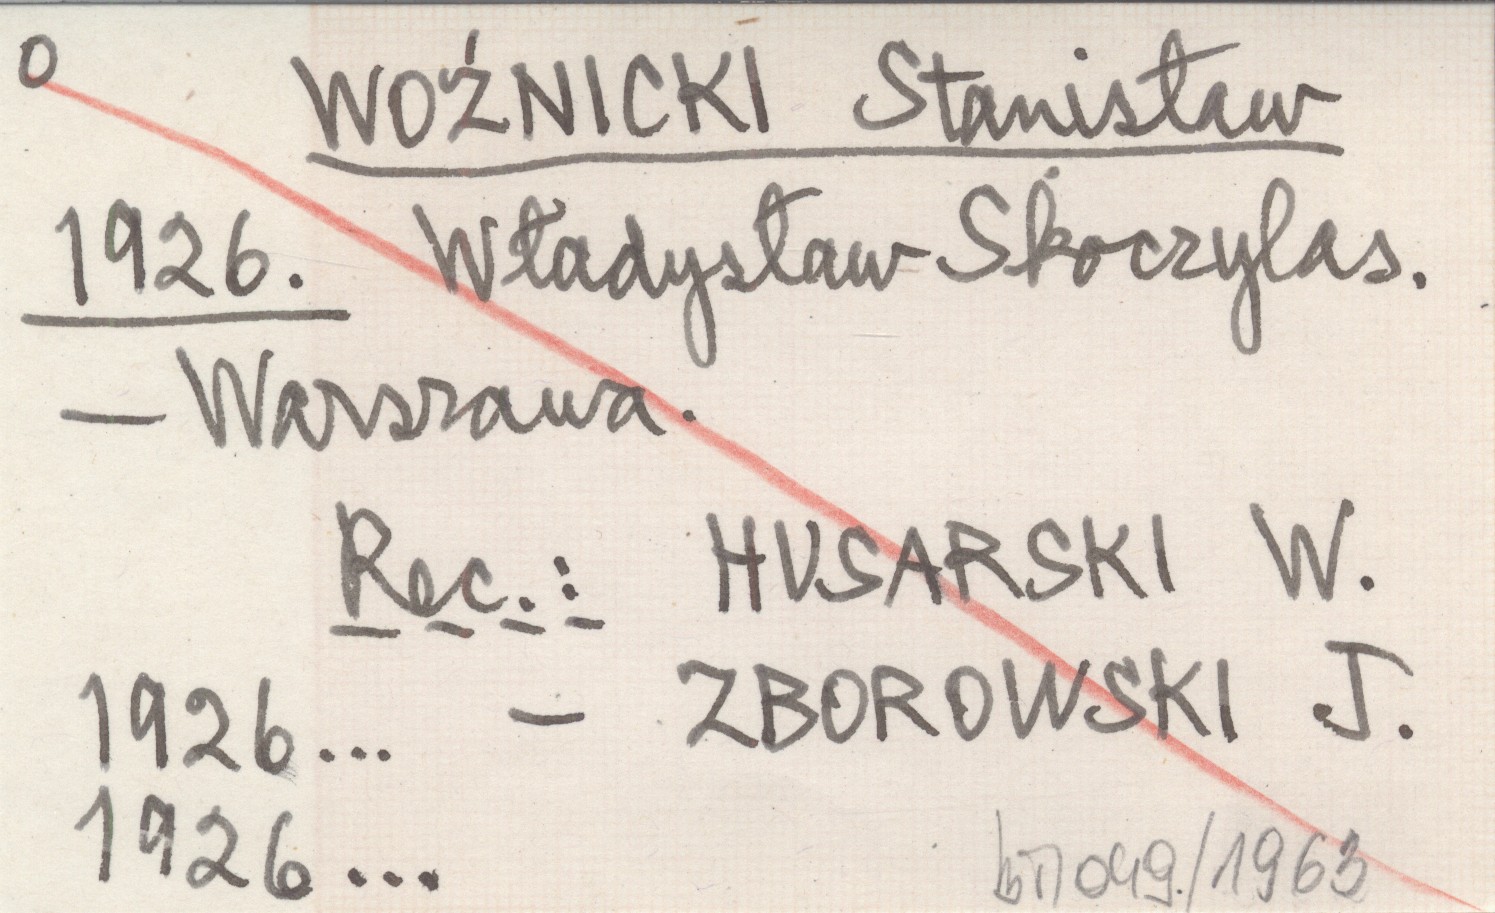 O
WOŹNICKI Stanisław
1926. Władysław Skoczylas.
— Warszawa.
Rec.: HUSARSKI W.
1926... — ZBOROWSKI J.
1926...
049./1963